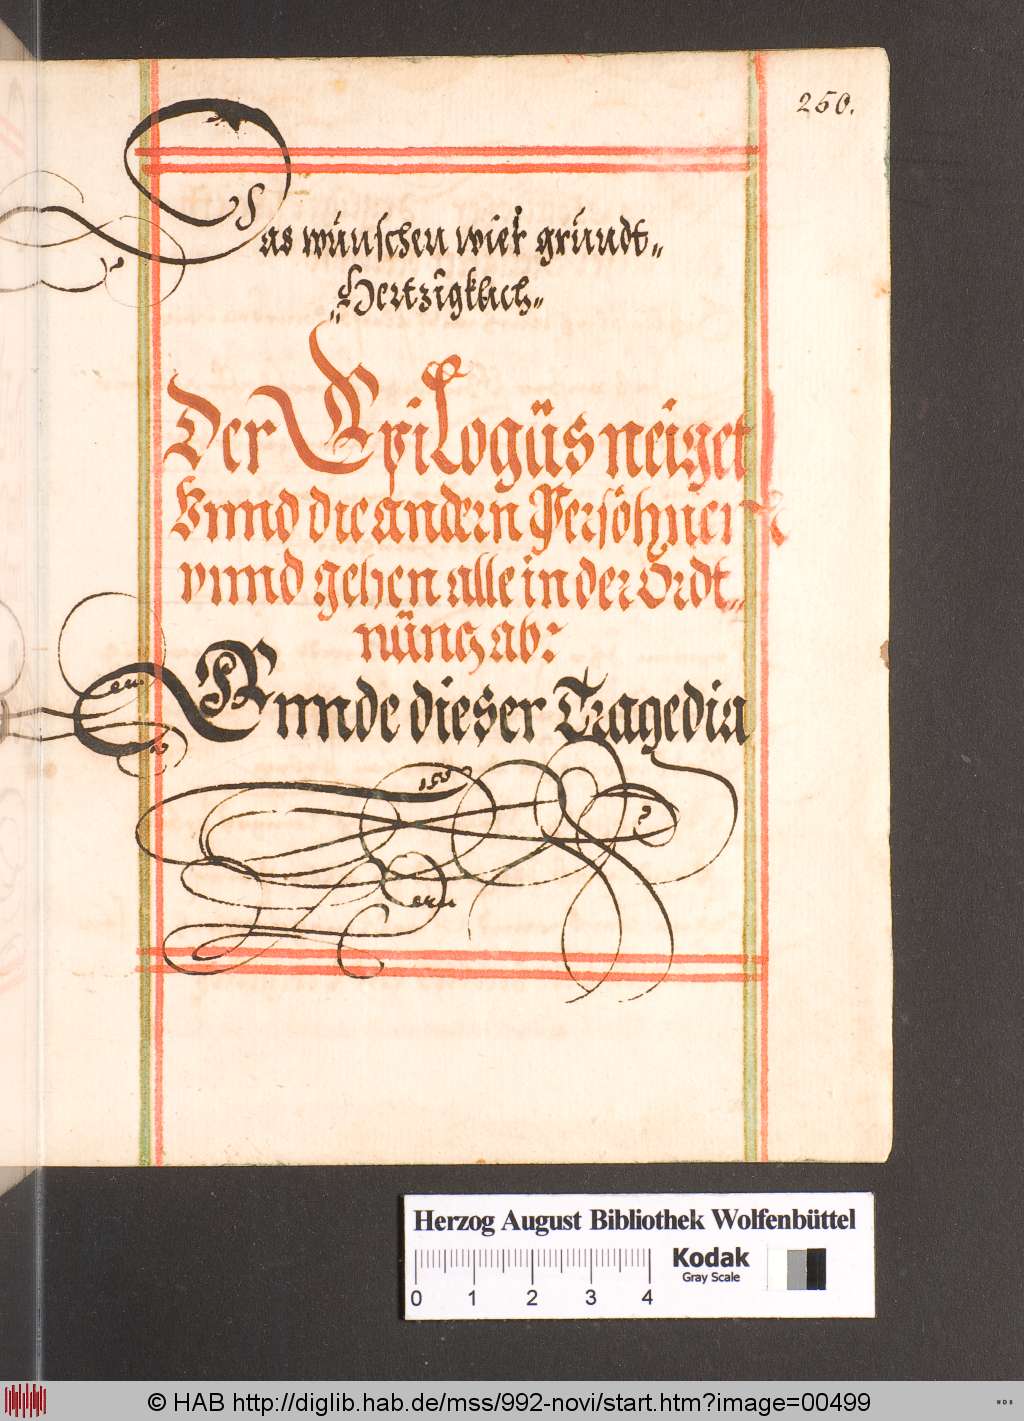 250.
Das wünschen wier gründt„
„Hertzigklich„
Der Epilogüs neiget
Vnnd die andern Persöhnen
vnnd gehen alle in der Ordt„
nüng ab:
Ennde dieser Tragedia
Herzog August Bibliothek Wolfenbüttel
Kodak
Gray Scale
0 1 2 3 4
© HAB http://diglib.hab.de/mss/992-novi/start.htm?image=00499